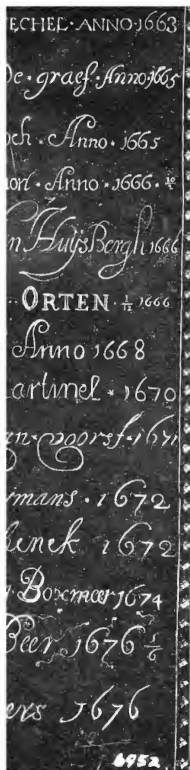 ECHEL · ANNO · 1663
De · graef · Anno · 1665
och · Anno · 1665
mon · Anno · 1666 · 10/2
n Huijsbergh 1666
· ORTEN · 1/12 1666
Anno 1668
artinel · 1670
an · voorst · 1671
rmans · 1672
henck 1672
Boxmeer 1674
Beer 1676 5/6
ers 1676
6952